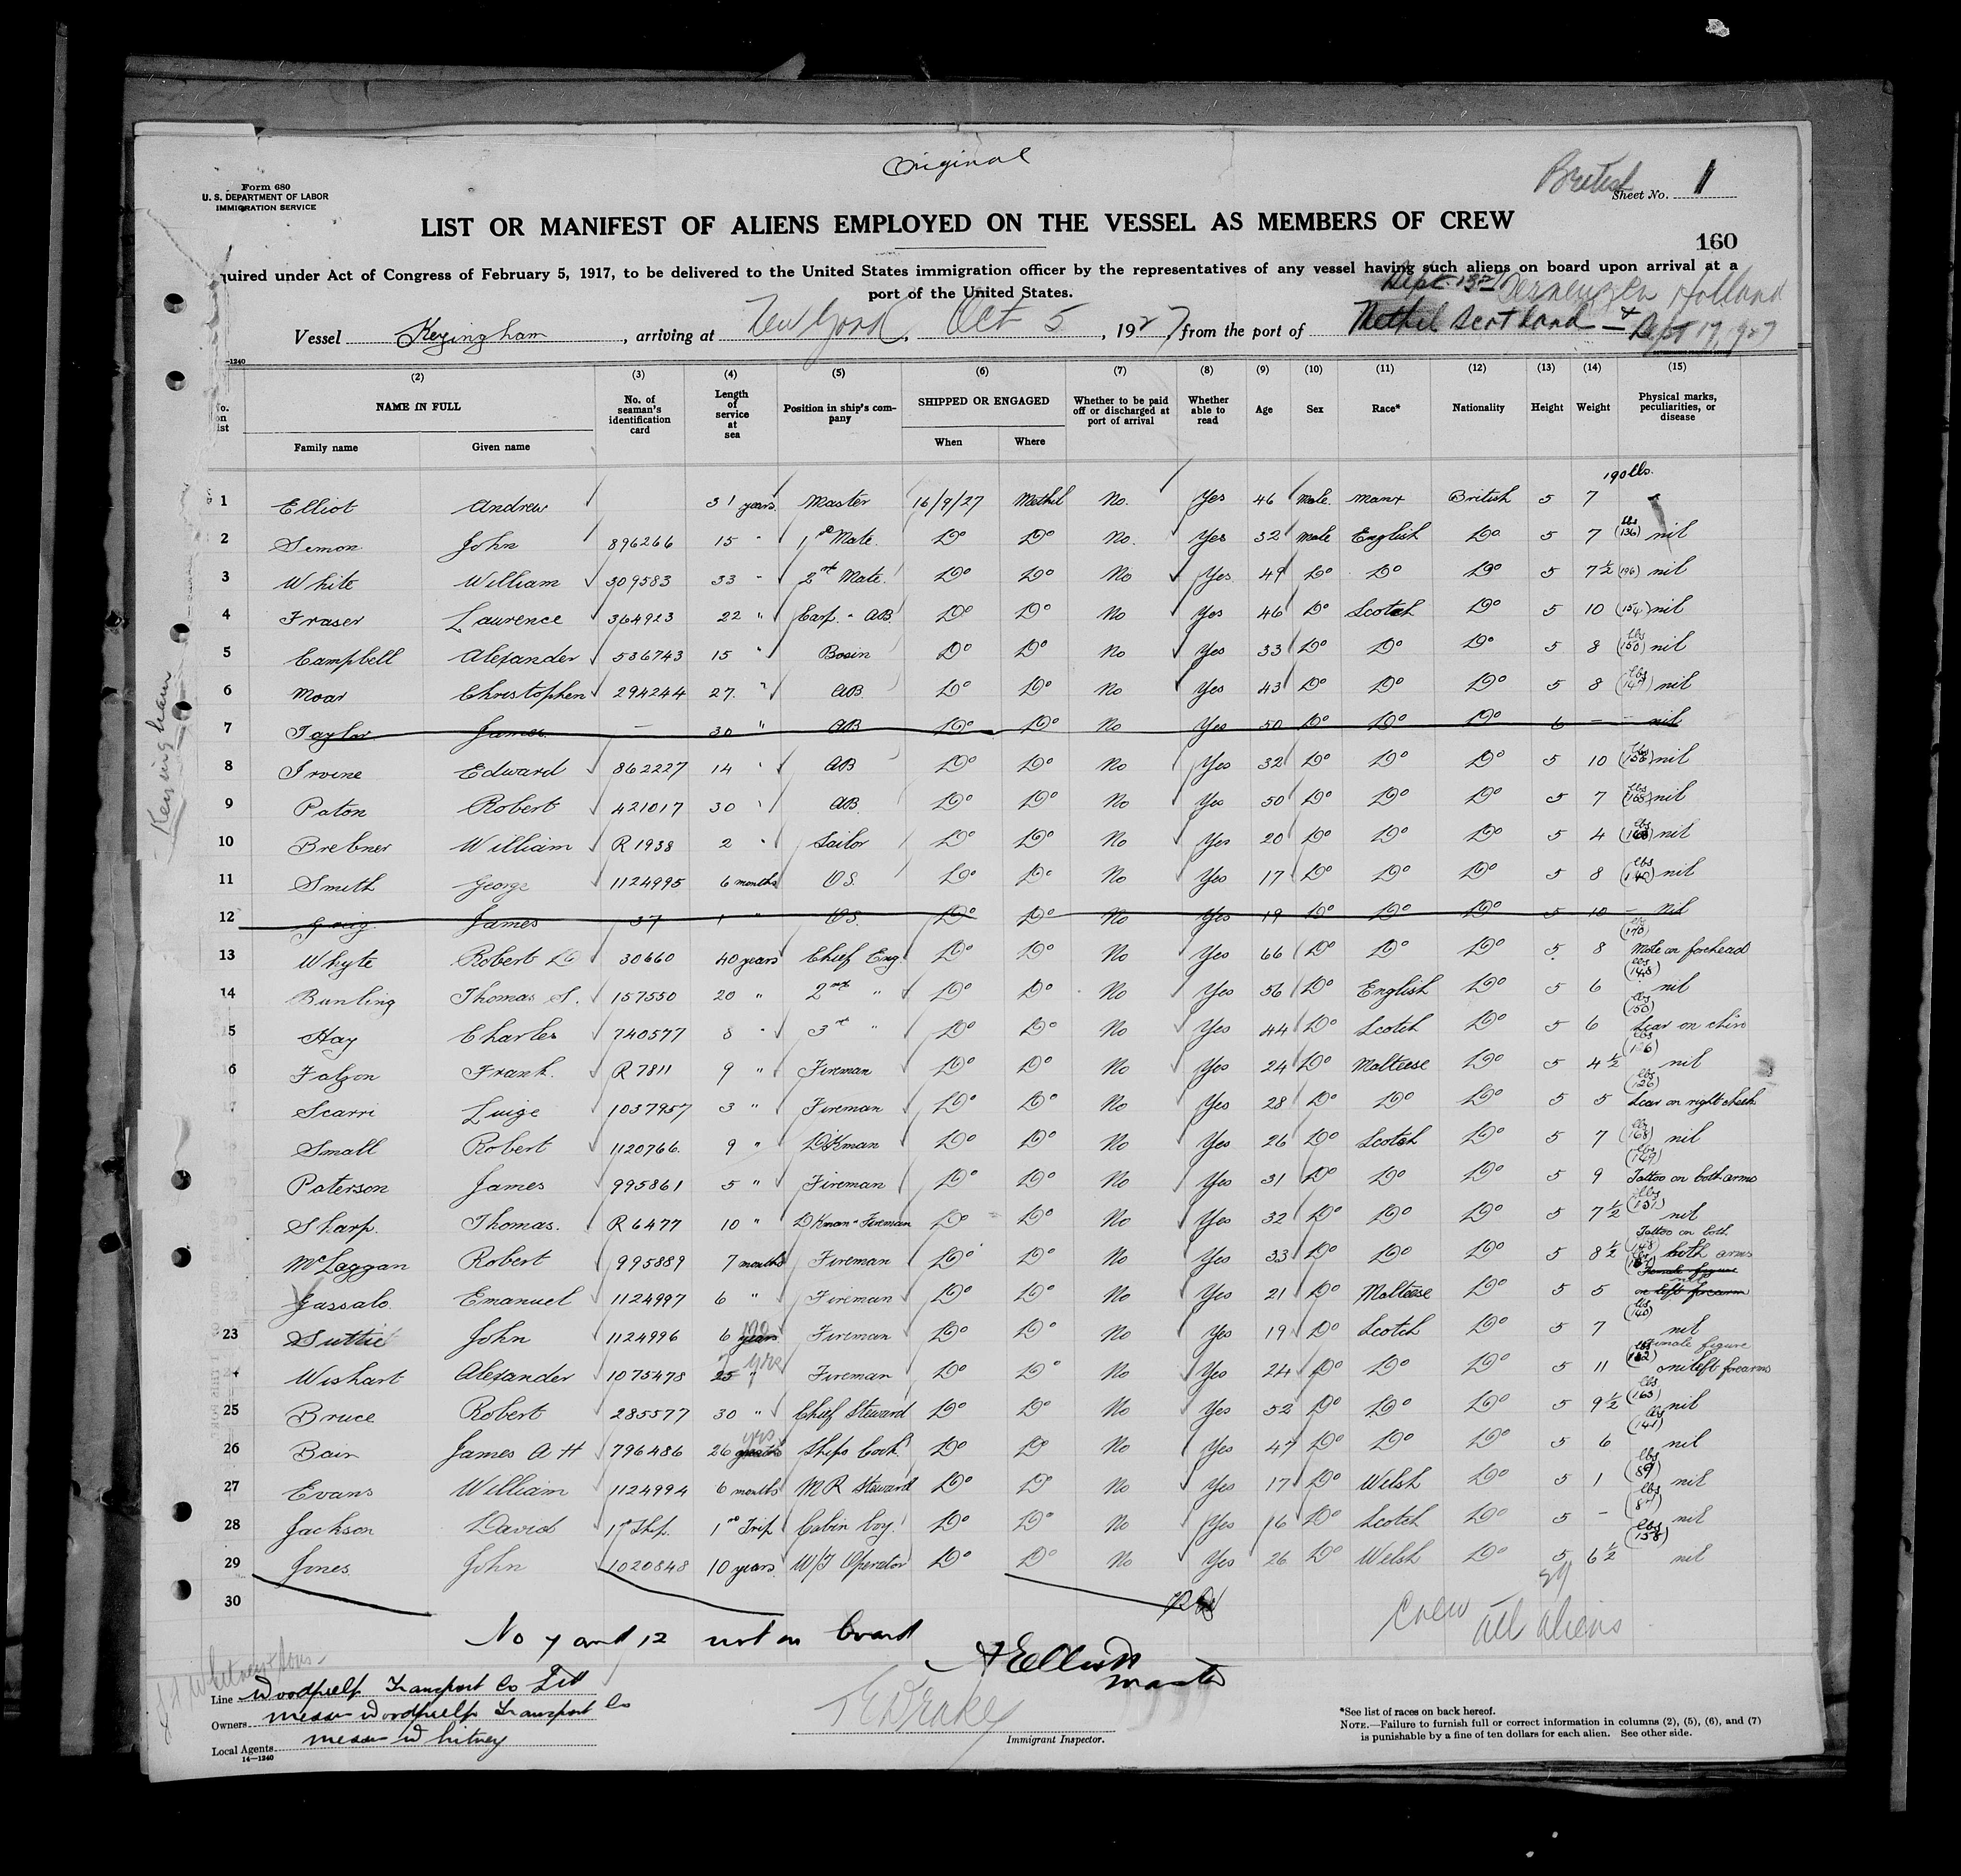 Original
Form 680
U. S. DEPARTMENT OF LABOR
IMMIGRATION SERVICE
British
Sheet No. 1
LIST OR MANIFEST OF ALIENS EMPLOYED ON THE VESSEL AS MEMBERS OF CREW
160
quired under Act of Congress of February 5, 1917, to be delivered to the United States immigration officer by the representatives of any vessel having such aliens on board upon arrival at a
port of the United States.
Holland
Vessel Keyingham, arriving at New York, Oct 5, 1927 from the port of Methil Scotland & Sept 17, 1927
-1240
(2) (3) (4) (5) (6) (7) (8) (9) (10) (11) (12) (13) (14) (15)
No. on list NAME IN FULL Family name Given name No. of seaman's identification card Length of service at sea Position in ship's company SHIPPED OR ENGAGED When Where Whether to be paid off or discharged at port of arrival Whether able to read Age Sex Race* Nationality Height Weight Physical marks, peculiarities, or disease
190 lbs.
1 Elliot Andrew 31 years Master 16/9/27 Methil No. Yes 46 Male. Manx British 5 7
2 Simon John 896266 15 " 1st Mate. Do Do No. Yes 32 male English Do 5 7 (136) lbs nil
3 White William 309583 33 " 2nd Mate. Do Do No Yes 49 Do Do Do 5 7½ (196) nil
4 Fraser Laurence 364923 22 " Carp. - AB Do Do No Yes 46 Do Scotch Do 5 10 (154) nil
5 Campbell Alexander 536743 15 " Bosin Do Do No Yes 33 Do Do Do 5 8 lbs (150) nil
6 Moar Christopher 294244 27. " AB Do Do No Yes 43 Do Do Do 5 8 lbs (147) nil
7 Taylor James — 30 " AB Do Do No Yes 50 Do Do Do 6 — — nil
8 Irvine Edward 862227 14 " AB Do Do No Yes 32 Do Do Do 5 10 lbs (158) nil
9 Paton Robert 421017 30 " AB Do Do No Yes 50 Do Do Do 5 7 lbs (168) nil
10 Brebner William R 1938 2 " Sailor Do Do No Yes 20 Do Do Do 5 4 lbs nil
11 Smith George 1124995 6 months O.S. Do Do No Yes 17 Do Do Do 5 8 lbs (140) nil
12 Greig James 37 1 " O.S. Do Do No Yes 19 Do Do Do 5 10 — nil
13 Whyte Robert 30660 40 years Chief Eng. Do Do No Yes 66 Do Do Do 5 8 lbs (170) Mole on forehead
14 Bunling Thomas S. 157550 20 " 2nd " Do Do No Yes 56 Do English Do 5 6 lbs (148) nil
5 Hay Charles 740577 8 " 3rd " Do Do No Yes 44 Do Scotch Do 5 6 lbs (150) Scar on chin
6 Falzon Frank. R 7811 9 " Fireman Do Do No Yes 24 Do Malteese Do 5 4½ lbs nil
Scarri Luige 1037957 3 " Fireman Do Do No Yes 28 Do Do Do 5 5 lbs (126) Scar on right cheek
Small Robert 1120766. 9 " D'Kman Do Do No Yes 26 Do Scotch Do 5 7 lbs (168) nil
Paterson James 995861 5 " Fireman Do Do No Yes 31 Do Do Do 5 9 lbs (149) Tattoo on both arms
Sharp. Thomas. R 6477 10 " D'Kman & Fireman Do Do No Yes 32 Do Do Do 5 7½ lbs (151) nil
McLaggan Robert 995889 7 months Fireman Do Do No Yes 33 Do Do Do 5 8½ (148) Tattoo on both both arms
Gassalo. Emanuel 1124997 6 " Fireman Do Do No Yes 21 Do Malteese Do 5 5 Female figure on left forearm nil
23 Suttie John 1124996 6 years mo Fireman Do Do No Yes 19 Do Scotch Do 5 7 lbs (140) nil
Wishart Alexander 1075478 25 " 7 yrs Fireman Do Do No Yes 24 Do Do Do 5 11 lbs Female figure on left forearms
25 Bruce Robert 285577 30 " Chief Steward Do Do No Yes 52 Do Do Do 5 9½ lbs (163) nil
26 Bain James A H 796486 26 months yrs Ships Cook Do Do No Yes 47 Do Do Do 5 6 lbs (141) nil
27 Evans William 1124994 6 months M R Steward Do Do No Yes 17 Do Welsh Do 5 1 lbs (89) nil
28 Jackson David 1st Ship. 1st Trip Cabin boy. Do Do No Yes 16 Do Scotch Do 5 — lbs nil
29 Jones John 1020848 10 years W/T Operator Do Do No Yes 26 Do Welsh Do 5 6½ lbs (158) nil
30
Keyingham
Crew 29 all aliens
No 7 and 12 not on board
A Elliott
Master
J H Whitney & Sons
Line Woodpulp Transport Co Ltd
Owners Messrs Woodpulp Transport Co
Local Agents Messrs Whitney
14—1240
T E Drakey
Immigrant Inspector.
*See list of races on back hereof.
NOTE.—Failure to furnish full or correct information in columns (2), (5), (6), and (7)
is punishable by a fine of ten dollars for each alien. See other side.